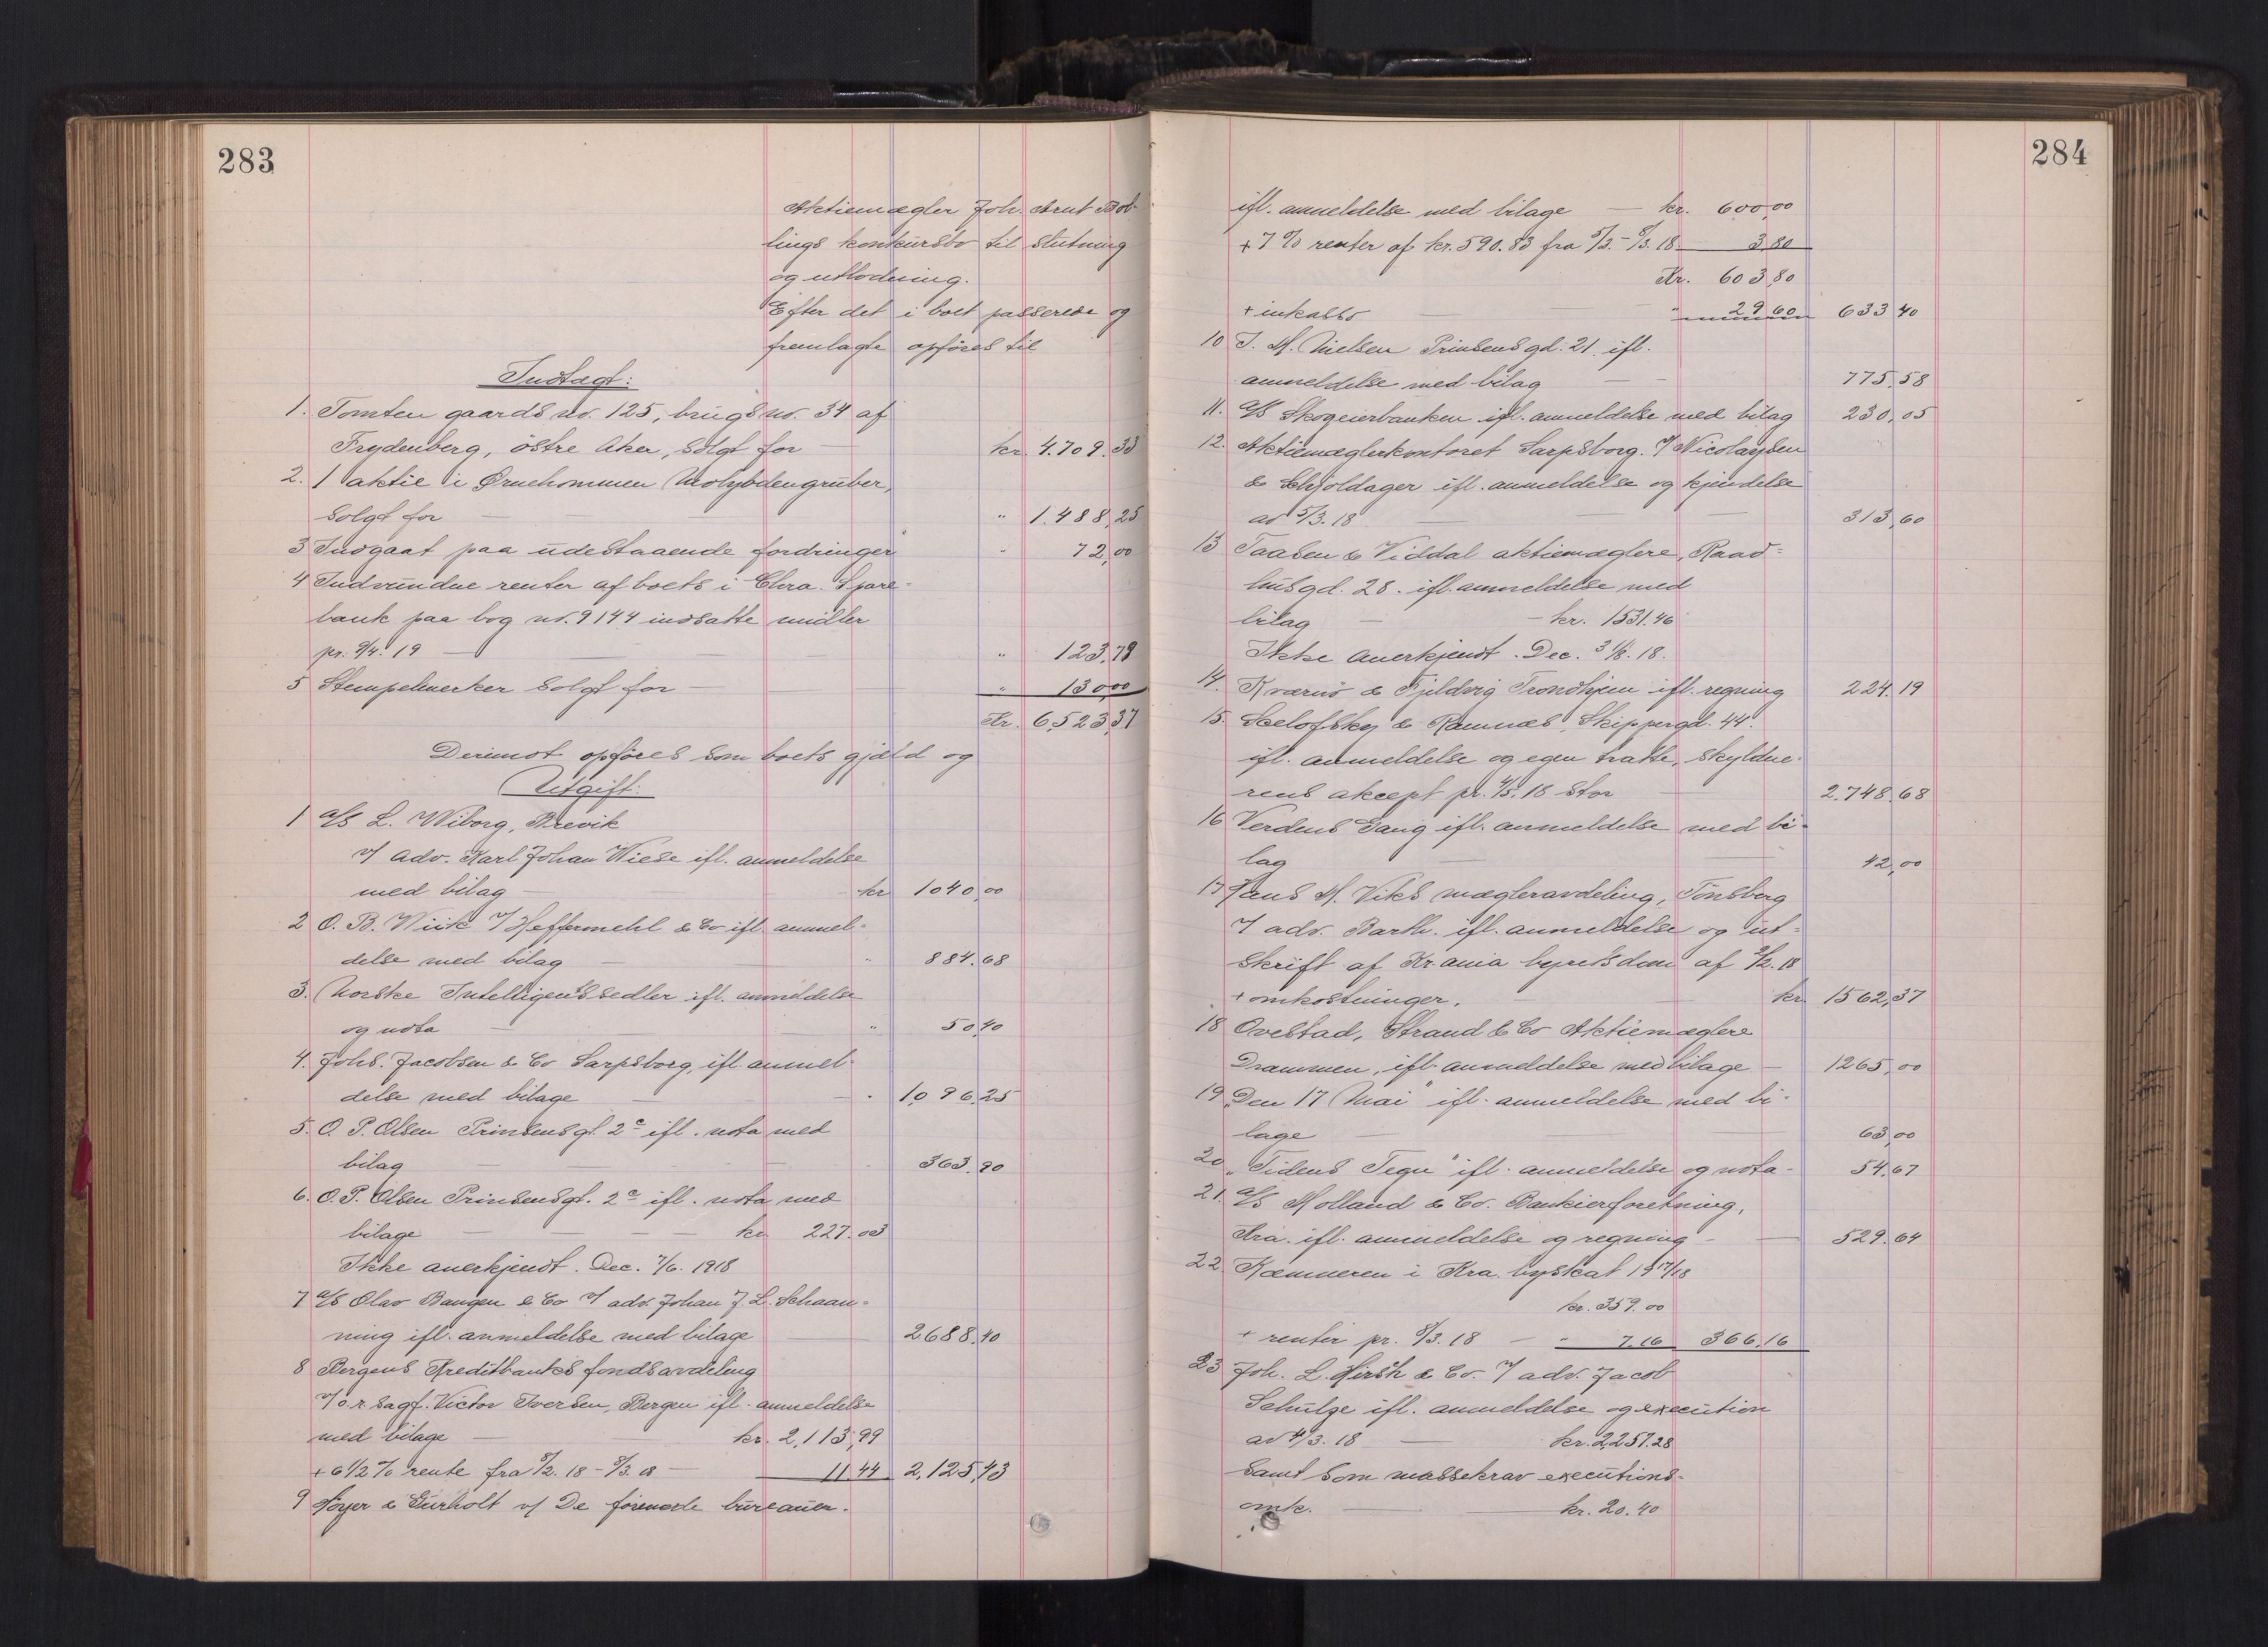 283
Aktiemægler Joh. Arnt Bol-
lings konkursbo til slutning
og utlodning.
Efter det i boet passerede og
fremlagte opføres til
Indtægt:
1. Tomten gaards no. 125, brugs no. 34 af
Frydenberg, østre Aker, solgt for — kr. 4.709.33
2. 1 aktie i Ørnehommen Molybdengruber,
solgt for — " 1.488,25
3 Indgaat paa udestaaende fordringer " 72,00
4 Indvundne renter af boets i Chra. Spare-
bank paa bog no. 9144 indsatte midler
pr. 9/4. 19 — " 123,79
5 Stempelmerker solgt for — " 130,00
Kr. 6,523,37
Derimot opføres som boets gjæld og
Utgift:
1 A/S L. Wiborg, Brevik
v/ adv. Karl Johan Wiese ifl. anmeldelse
med bilag — kr 1040,00
2 O. B. Wiik v/ Heffermehl & Co ifl. anmel-
delse med bilag — " 884.68
3. Norske Intelligentssedler ifl. anmeldelse
og nota — " 50,40
4. Johs. Jacobsen & Co Sarpsborg, ifl. anmel-
delse med bilage — " 1,096,25
5. O. P. Olsen Prinsensgt. 2c ifl. nota med
bilag — 363.90
6. O. P. Olsen Prinsensgt. 2c ifl. nota med
bilage — kr. 227.03
Ikke anerkjendt. Dec. 7/6. 1918
7 A/S Olav Baugen & Co v/ adv. Johan J. L. Schaan-
ning ifl. anmeldelse med bilage — 2688.40
8 Bergens Kreditbanks fondsavdeling
v/ o.r.sagf. Victor Iversen, Bergen ifl. anmeldelse
med bilage — kr. 2,113,99
+ 6 1/2 % rente fra 5/2. 18 - 5/3. 18 — 11.44 2,125,43
9 Høyer & Gurholt v/ De forenede bureauer.
284
ifl. anmeldelse med bilage — kr. 600,00
+ 7 % renter af kr. 590.83 fra 5/2 - 8/3. 18. 3,80
Kr. 603,80
+ inkasso — " 29,60 633,40
10 J. M. Nielsen Prinsens gd. 21. ifl.
anmeldelse med bilag — 775,58
11. A/S Skogeierbanken ifl. anmeldelse med bilag 230,05
12. Aktiemæglerkontoret Sarpsborg. v/ Nicolaysen
& Schjoldager ifl. anmeldelse og kjendelse
av 5/3. 18 — 313,60
13 Taasen & Viddal aktiemæglere, Raad-
husgd. 28. ifl. anmeldelse med
bilag — kr. 1531.46
Ikke anerkjendt. Dec. 31/8. 18.
14. Kværnø & Fjeldvig Trondhjem ifl. regning 224.19
15. Selofsky & Ramnæs, Skippergd. 44.
ifl. anmeldelse og egen tratte, skyldne-
rens akcept pr. 4/5. 18 stor — 2.748.68
16 Verdens Gang ifl. anmeldelse med bi-
lag — 42,00
17 Hans M. Viks mægleravdeling, Tønsberg
v/ adv. Barth. ifl. anmeldelse og ut-
skrift af Kr.ania byretsdom af 9/2. 18
+ omkostninger. — kr. 1562,37
18 Ovestad, Strand & Co Aktiemæglere
Drammen, ifl. anmeldelse med bilage — 1265,00
19 „Den 17 Mai" ifl. anmeldelse med bi-
lage — 63,00
20 „Tidens Tegn" ifl. anmeldelse og nota - 54.67
21. A/S Holland & Co. Bankierforretning,
Kra. ifl. anmeldelse og regning — 529.64
22 Kæmneren i Kra. byskat 1917/18
kr. 359.00
+ renter pr. 8/3. 18 — " 7.16 366,16
23 Joh. L. Hirsh & Co. v/ adv. Jacob
Schulze ifl. anmeldelse og execution
av 4/3. 18 — kr. 2,257.28
samt som massekrav executions-
omk. — kr. 20.40